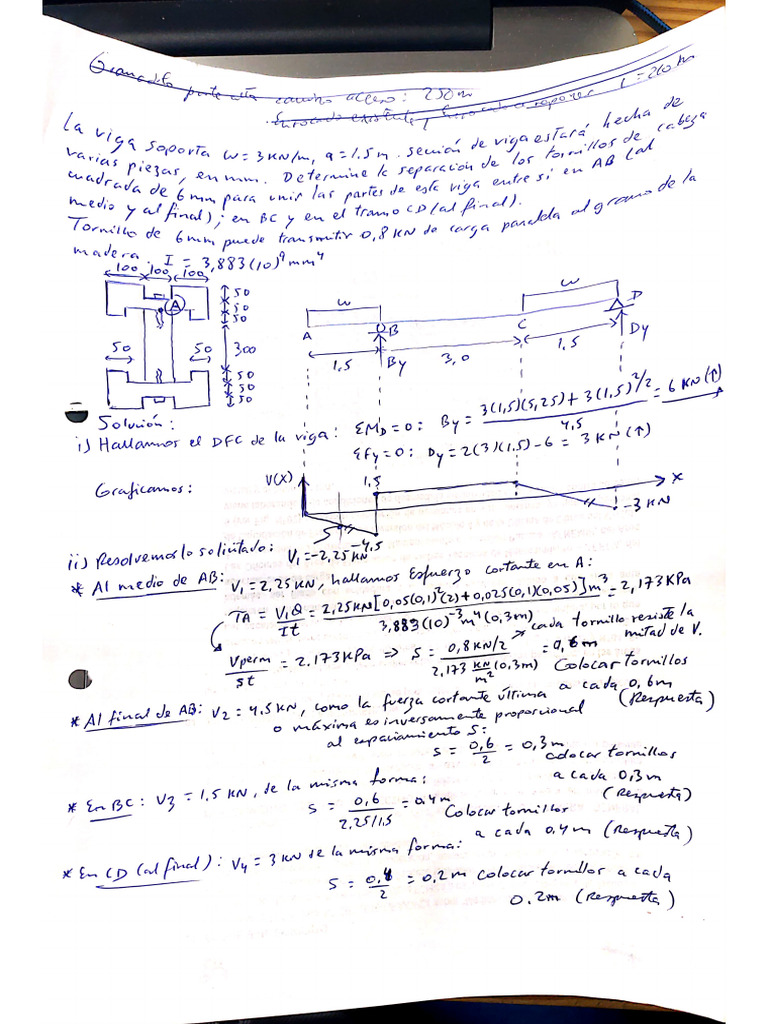 Granada parte alta camino acceso: 250m
Enrocado existente y L=260m
La viga soporta w=3KN/m, a=1.5m. sección de viga estará hecha de
varias piezas, en mm. Determine la separación de los tornillos de cabeza
cuadrada de 6mm para unir las partes de esta viga entre sí en AB (al
medio y al final); en BC y en el tramo CD (al final).
Tornillo de 6mm puede transmitir 0,8KN de carga paralela al grano de la
madera. I = 3,883(10)⁹mm⁴
100 100 100
50
50
50
A
50 50 300
50
50
50
w w
A B C D
1,5 By 3,0 1,5 Dy
Solución:
i) Hallamos el DFC de la viga: ΣM_D=0: By = (3(1,5)(5,25)+3(1,5)²/2)/4,5 = 6KN(↑)
ΣFy=0: Dy=2(3)(1.5)-6 = 3KN(↑)
Graficamos: V(X) 1,5 X
-3KN
-4,5
ii) Resolvemos lo solicitado: V₁=-2,25KN
* Al medio de AB: V₁=2,25KN, hallamos Esfuerzo cortante en A:
TA = V₁Q/It = 2,25KN[0,05(0,1)²(2)+0,025(0,1)(0,05)]m³/3,883(10)⁻³m⁴(0,3m) = 2,173KPa
cada tornillo resiste la
mitad de V.
Vperm/st = 2.173KPa => S = (0,8KN/2)/(2,173 KN/m² (0,3m)) = 0,6m Colocar tornillos
a cada 0,6m
(Respuesta)
* Al final de AB: V₂=4,5KN, como la fuerza cortante última
o máxima es inversamente proporcional
al espaciamiento S:
S = 0,6/2 = 0,3m colocar tornillos
a cada 0,3m
(Respuesta)
* En BC: V₃=1,5KN, de la misma forma:
S = 0,6/(2,25/1,5) = 0,4m Colocar tornillos
a cada 0,4m (Respuesta)
* En CD (al final): V₄=3KN de la misma forma:
S = 0,4/2 = 0,2m colocar tornillos a cada
0.2m (Respuesta)